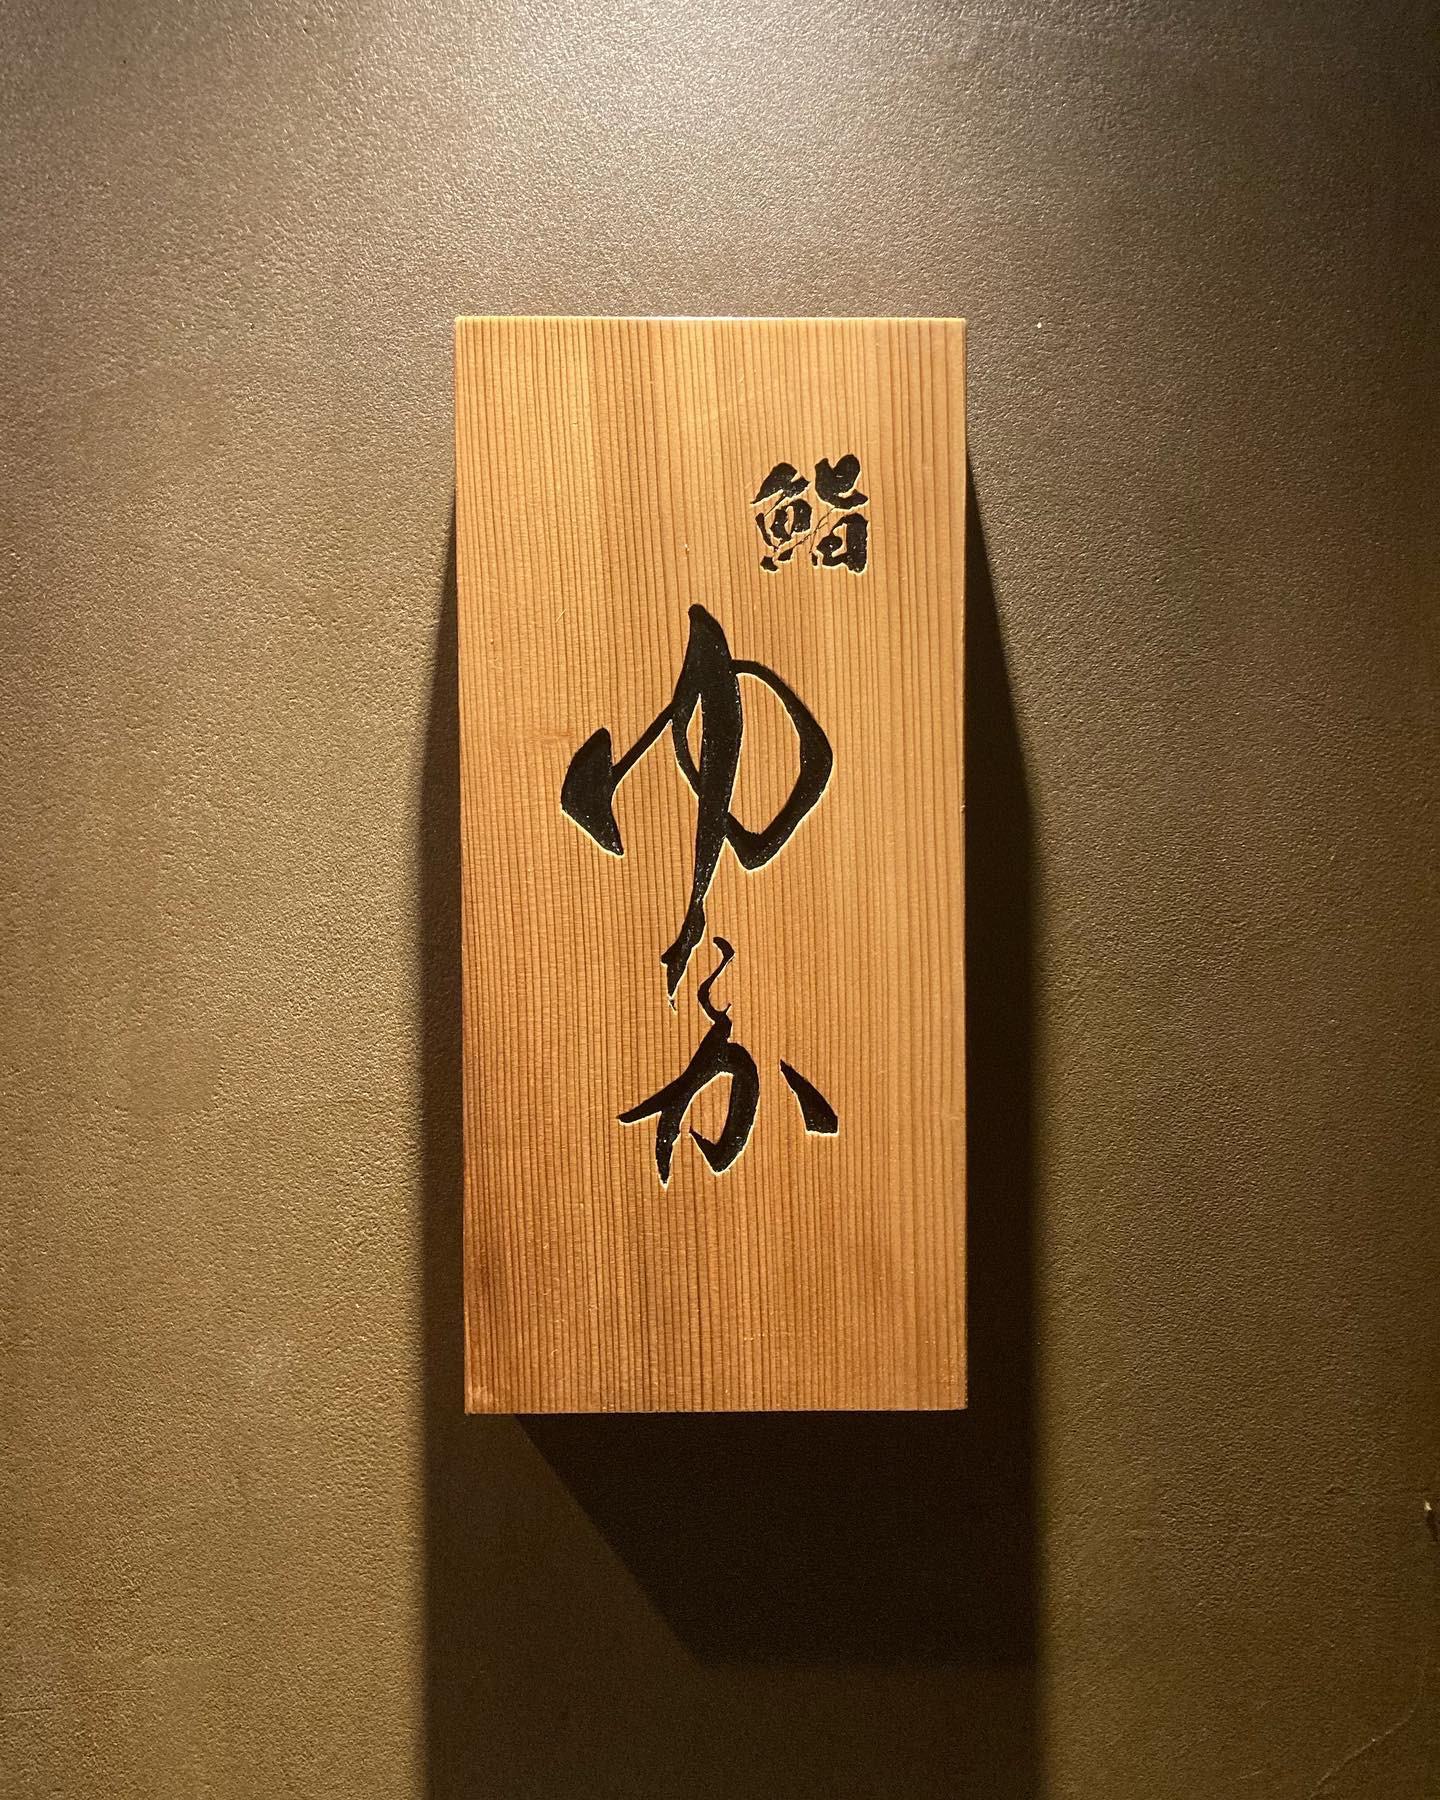 鮨
ゆたか